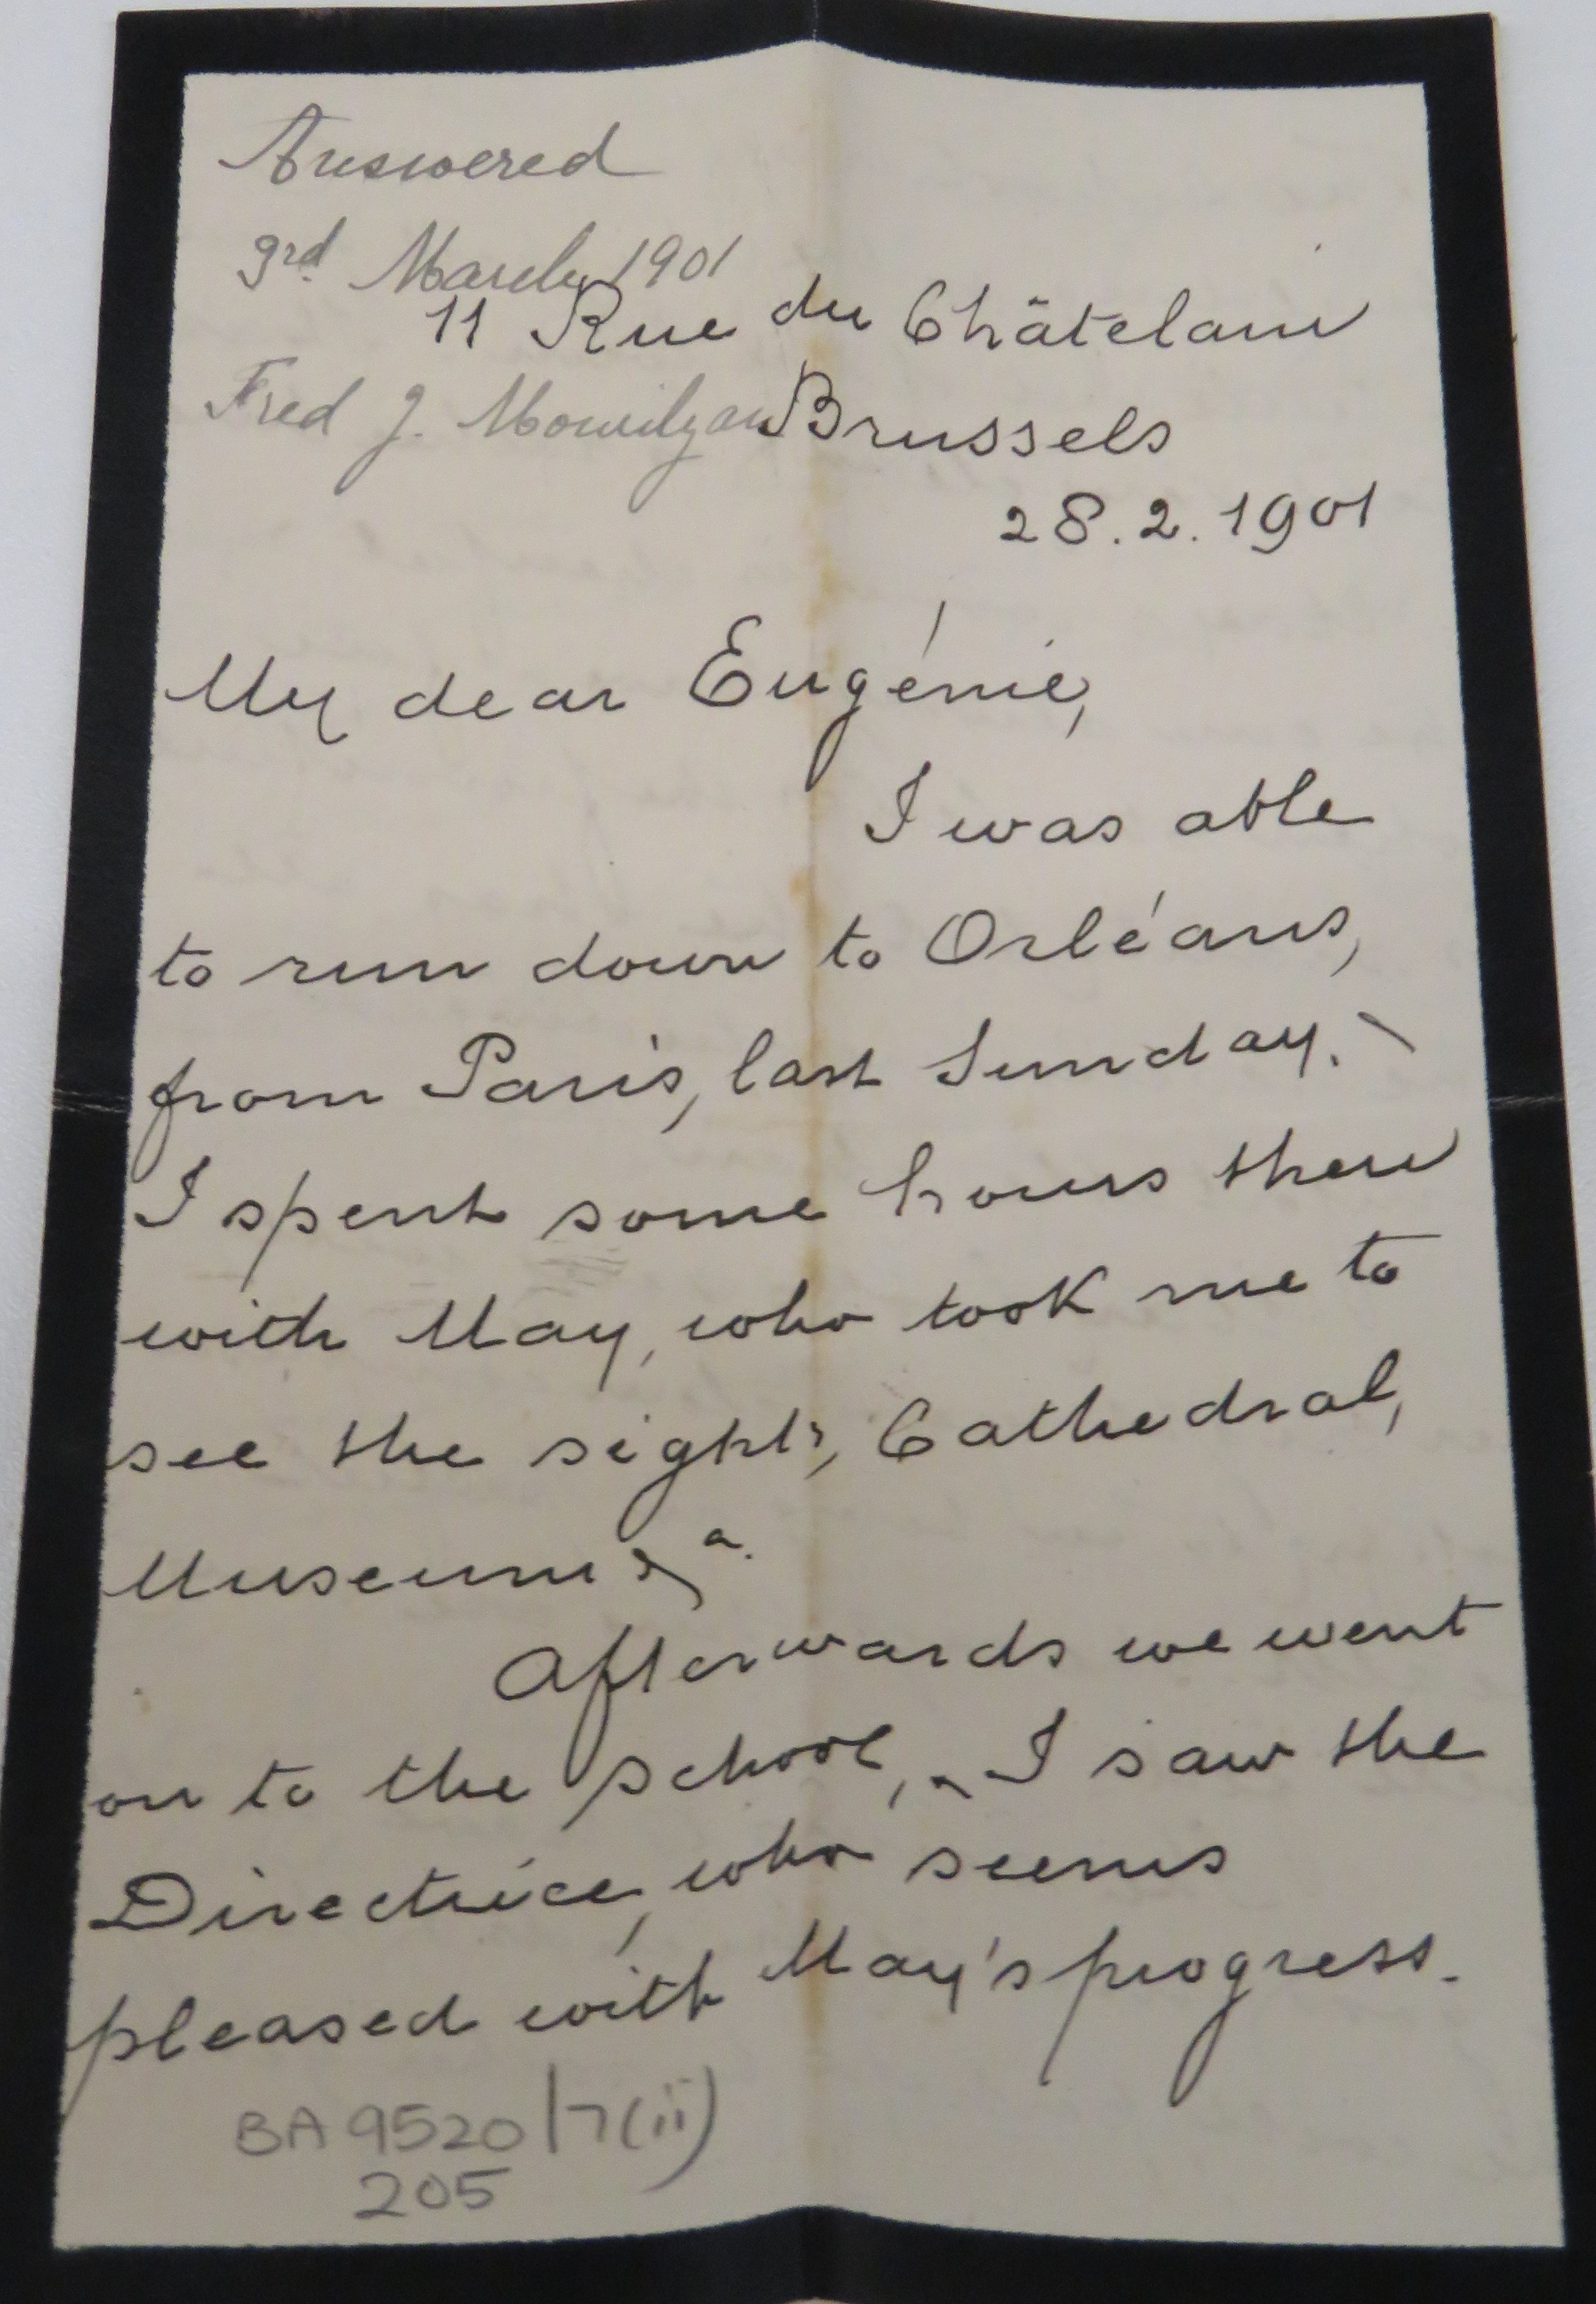 Answered
3rd March 1901
11 Rue du Châtelain
Fred J.
Brussels
28.2.1901
My dear Eugénie,
I was able
to run down to Orléans,
from Paris, last Sunday.
I spent some hours there
with May, who took me to
see the sights, Cathedral,
Museum &a.
Afterwards we went
on to the school, I saw the
Directrice, who seems
pleased with May's progress.
BA 9520/7(ii)
205